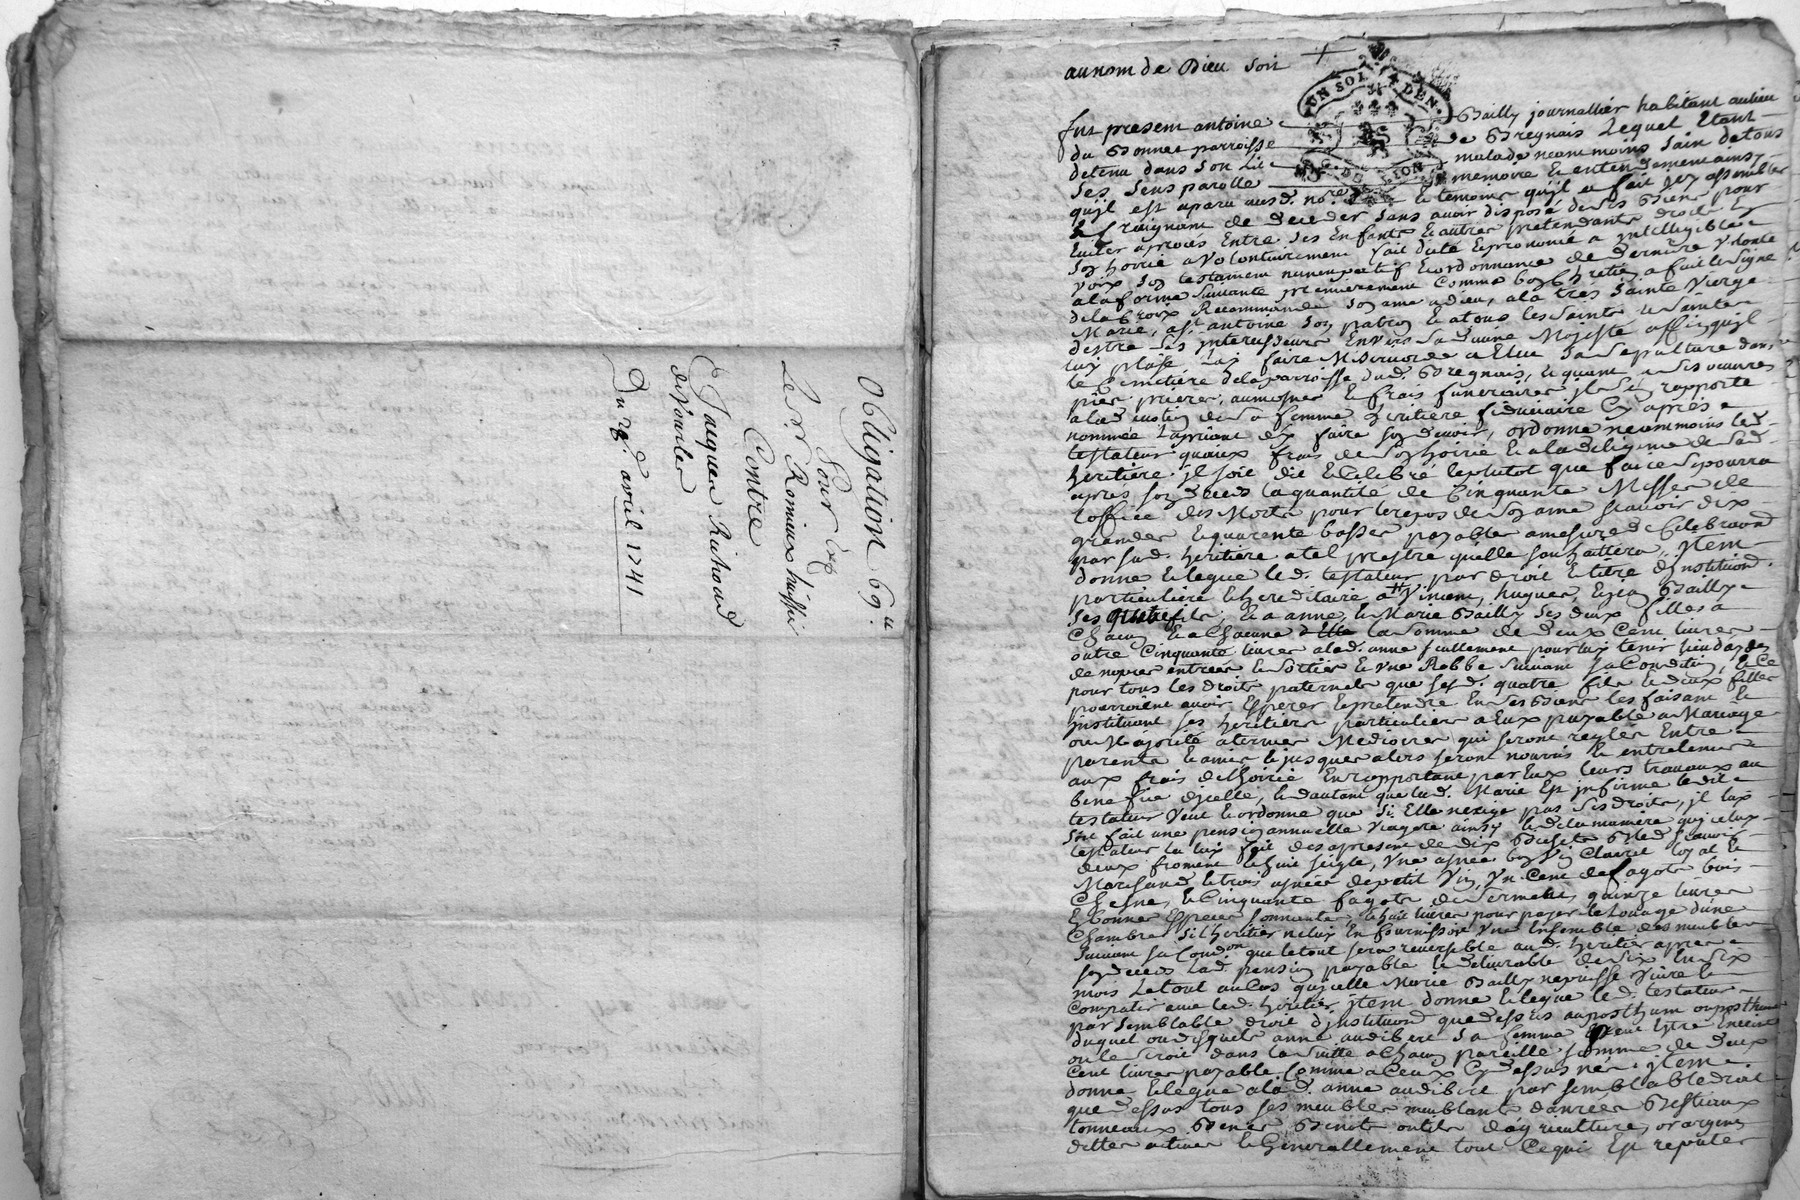 Obligation 69.ᵗᵗ
Pour
Le sr Romieux huissier
Contre
Jacques Richoard
dejourles
Du 29.e avril 1741
au nom de Dieu soit
UN SOL 4 DEN.
LION
fut present antoine Bailly journallier habitant au lieu
du Bonnet parroisse de Bregnais Lequel Etant
detenu dans son Lit malade neanmoins sain de tous
ses sens parolle memoire Et entendement ainsy
qu'jl est aparu ausd. nore. Et temoins qu'jl a fait jcy assembler
Et Craignant de deceder sans avoir disposé de ses Biens pour
Eviter a proces Entre ses Enfants Et autres pretendants droits En
son hoirie a volontairement fait dicté Et prononcé a jntelligible
voix son testament nuncupatif Et ordonnance de derniere volonté
a la forme suivante premierement Comme bon Chretien a fait le signe
de la Croix Recommandé son ame a dieu, a la tres sainte Vierge
Marie, a st. antoine son patron Et a tous les saints Et saintes
d'estre ses jntercesseurs Envers sa divine Majesté affin qu'jl
luy plaise luy faire Misericorde a Elue sa sepulture dans
le Cimetiére de la parroisse dud. Bregnais, Et quant a ses oeuvres
pies prieres, aumosnes Et frais funeraires jl s'en rapporte
a la discretion de sa femme heritiere fiduciaire Cy aprés
nommée La priant d'en faire son devoir, ordonne neanmoins led.
testateur qu'aux frais de son hoirie Et a la diligence de sad.
heritiere jl soit dit Et Celebré le plutot que faire se pourra
apres son deces la quantité de Cinquante Messes de
l'office des Morts pour le repos de son ame scavoir dix
grandes Et quarente basses payables a mesure de Celebraon
par sad. heritiere a tel prestre qu'elle souhaittera, Jtem
donne Et legue led. testateur, par droit Et titre d'jnstitution
particuliere Et hereditaire a Vincent, hugues Et jean Bailly
ses fils, Et a anne, Et Marie Bailly ses deux filles a
Chacun Et a Chacune la somme de deux Cent livres
outre Cinquante livres a lad. anne seullement pour luy tenir lieu
de noces entrées Et sorties Et une Robbe suivant sa Condition, Et Ce
pour tous les droits paternels que sesd. quatre fils Et deux filles
pourroient avoir Esperer Et pretendre En ses Biens les faisant Et
jnstituant ses heritiers particuliers a Eux payable a Mariage
ou Majorité a termes Mediocres qui seront reglés Entre
parents Et amis Et jusques alors seront nourris Et entretenus
aux frais de l'hoirie En rapportant par Eux leurs travaux au
benefice d'jcelle, Et d'autant que lad. Marie Est jnfirme led.
testateur Veut Et ordonne que si Elle n'exige pas ses droits, jl luy
soit fait une pension annuelle Viagere ainsy Et de la maniere qu'jceluy
testateur la luy fait des a present de dix Bichets Bled scavoir
deux froment Et huit seigle, Une asnée bon Vin Clairet loyal Et
Marchand Et trois asnées de petit Vin, Un Cent de fagots bois
Chesne, Et Cinquante fagots de serments, quinze livres
En bonnes Especes sonnantes Et huit livres pour payer le Louage d'une
Chambre si l'heritier ne luy En fournissoit Une Ensemble des meubles
suivant sa Condon que le tout sera reversible aud. heritier apres
son deces Lad. pension payable Et delivrable de six En six
mois Le tout au Cas qu'jcelle Marie Bailly ne puisse Vivre Et
Compatir avec led. heritier, jtem donne Et legue led. testateur
par semblable droit d'jnstitution que dessus au posthume ou posthumes
duquel ou desquels anne audibert sa femme peut Estre Enceinte
ou le seroit dans la suitte a Chacun pareille somme de deux
Cent livres payable Comme a Ceux Cy dessus nés. jtem
donne Et legue a lad. anne audibert par semblable droit
que dessus tous ses meubles meublants danrées Bestiaux
tonneaux Benes Benots outils d'agriculture, or argent
dettes actives Et Generallement tout Ce qui Est reputer